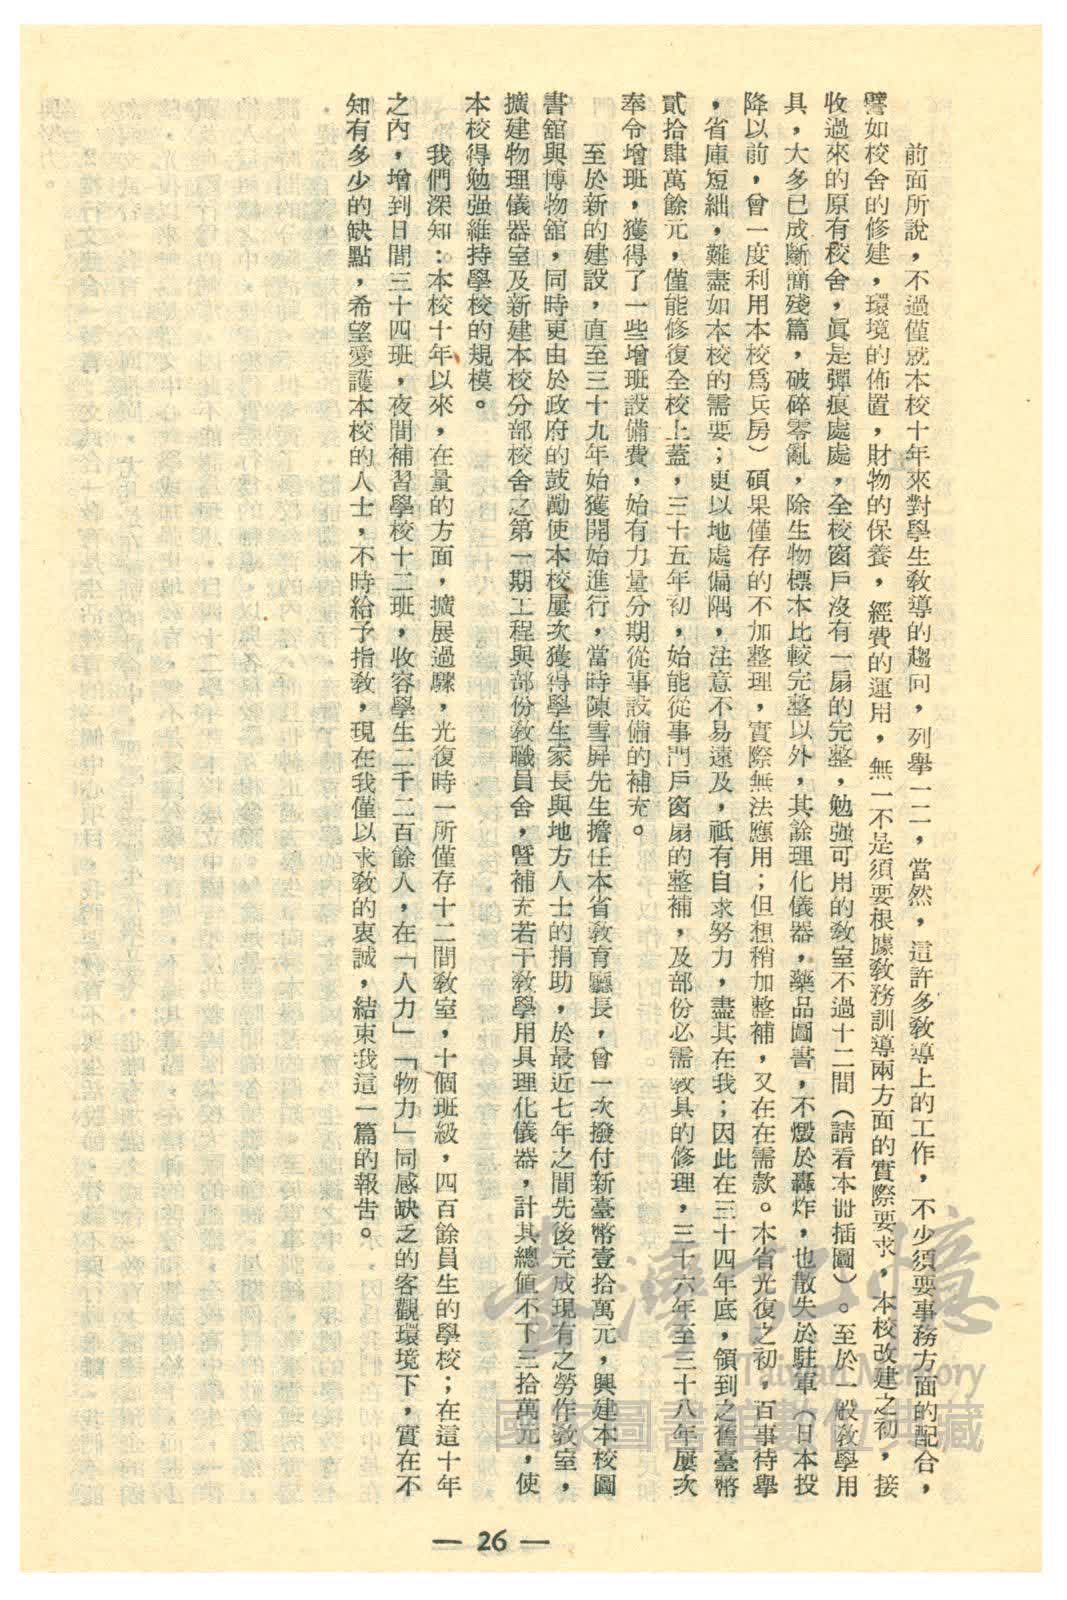 前面所說，不過僅就本校十年來對學生敎導的趨向，列舉一二，當然，這許多敎導上的工作，不少須要事務方面的配合，
譬如校舍的修建，環境的佈置，財物的保養，經費的運用，無一不是須要根據敎務訓導兩方面的實際要求，本校改建之初，接
收過來的原有校舍，眞是彈痕處處，全校窗戶沒有一扇的完整，勉强可用的敎室不過十二間（請看本册插圖）。至於一般敎學用
具，大多已成斷簡殘篇，破碎零亂，除生物標本比較完整以外，其餘理化儀器，藥品圖書，不燬於轟炸，也散失於駐軍（日本投
降以前，曾一度利用本校爲兵房）碩果僅存的不加整理，實際無法應用；但想稍加整補，又在在需款。本省光復之初，百事待擧
，省庫短絀，難盡如本校的需要；更以地處偏隅，注意不易遠及，祇有自求努力，盡其在我；因此在三十四年底，領到之舊臺幣
貳拾肆萬餘元，僅能修復全校上蓋，三十五年初，始能從事門戶窗扇的整補，及部份必需敎具的修理，三十六年至三十八年屢次
奉令增班，獲得了一些增班設備費，始有力量分期從事設備的補充。
至於新的建設，直至三十九年始獲開始進行，當時陳雪屏先生擔任本省敎育廳長，曾一次撥付新臺幣壹拾萬元，興建本校圖
書舘與博物舘，同時更由於政府的鼓勵使本校屢次獲得學生家長與地方人士的捐助，於最近七年之間先後完成現有之勞作敎室，
擴建物理儀器室及新建本校分部校舍之第一期工程與部份敎職員舍，曁補充若干敎學用具理化儀器，計其總値不下三拾萬元，使
本校得勉强維持學校的規模。
我們深知：本校十年以來，在量的方面，擴展過驟，光復時一所僅存十二間敎室，十個班級，四百餘員生的學校；在這十年
之內，增到日間三十四班，夜間補習學校十二班，收容學生二千二百餘人，在「人力」「物力」同感缺乏的客觀環境下，實在不
知有多少的缺點，希望愛護本校的人士，不時給予指敎，現在我僅以求敎的衷誠，結束我這一篇的報告。
— 26 —
臺灣記憶
Taiwan Memory
國家圖書館數位典藏